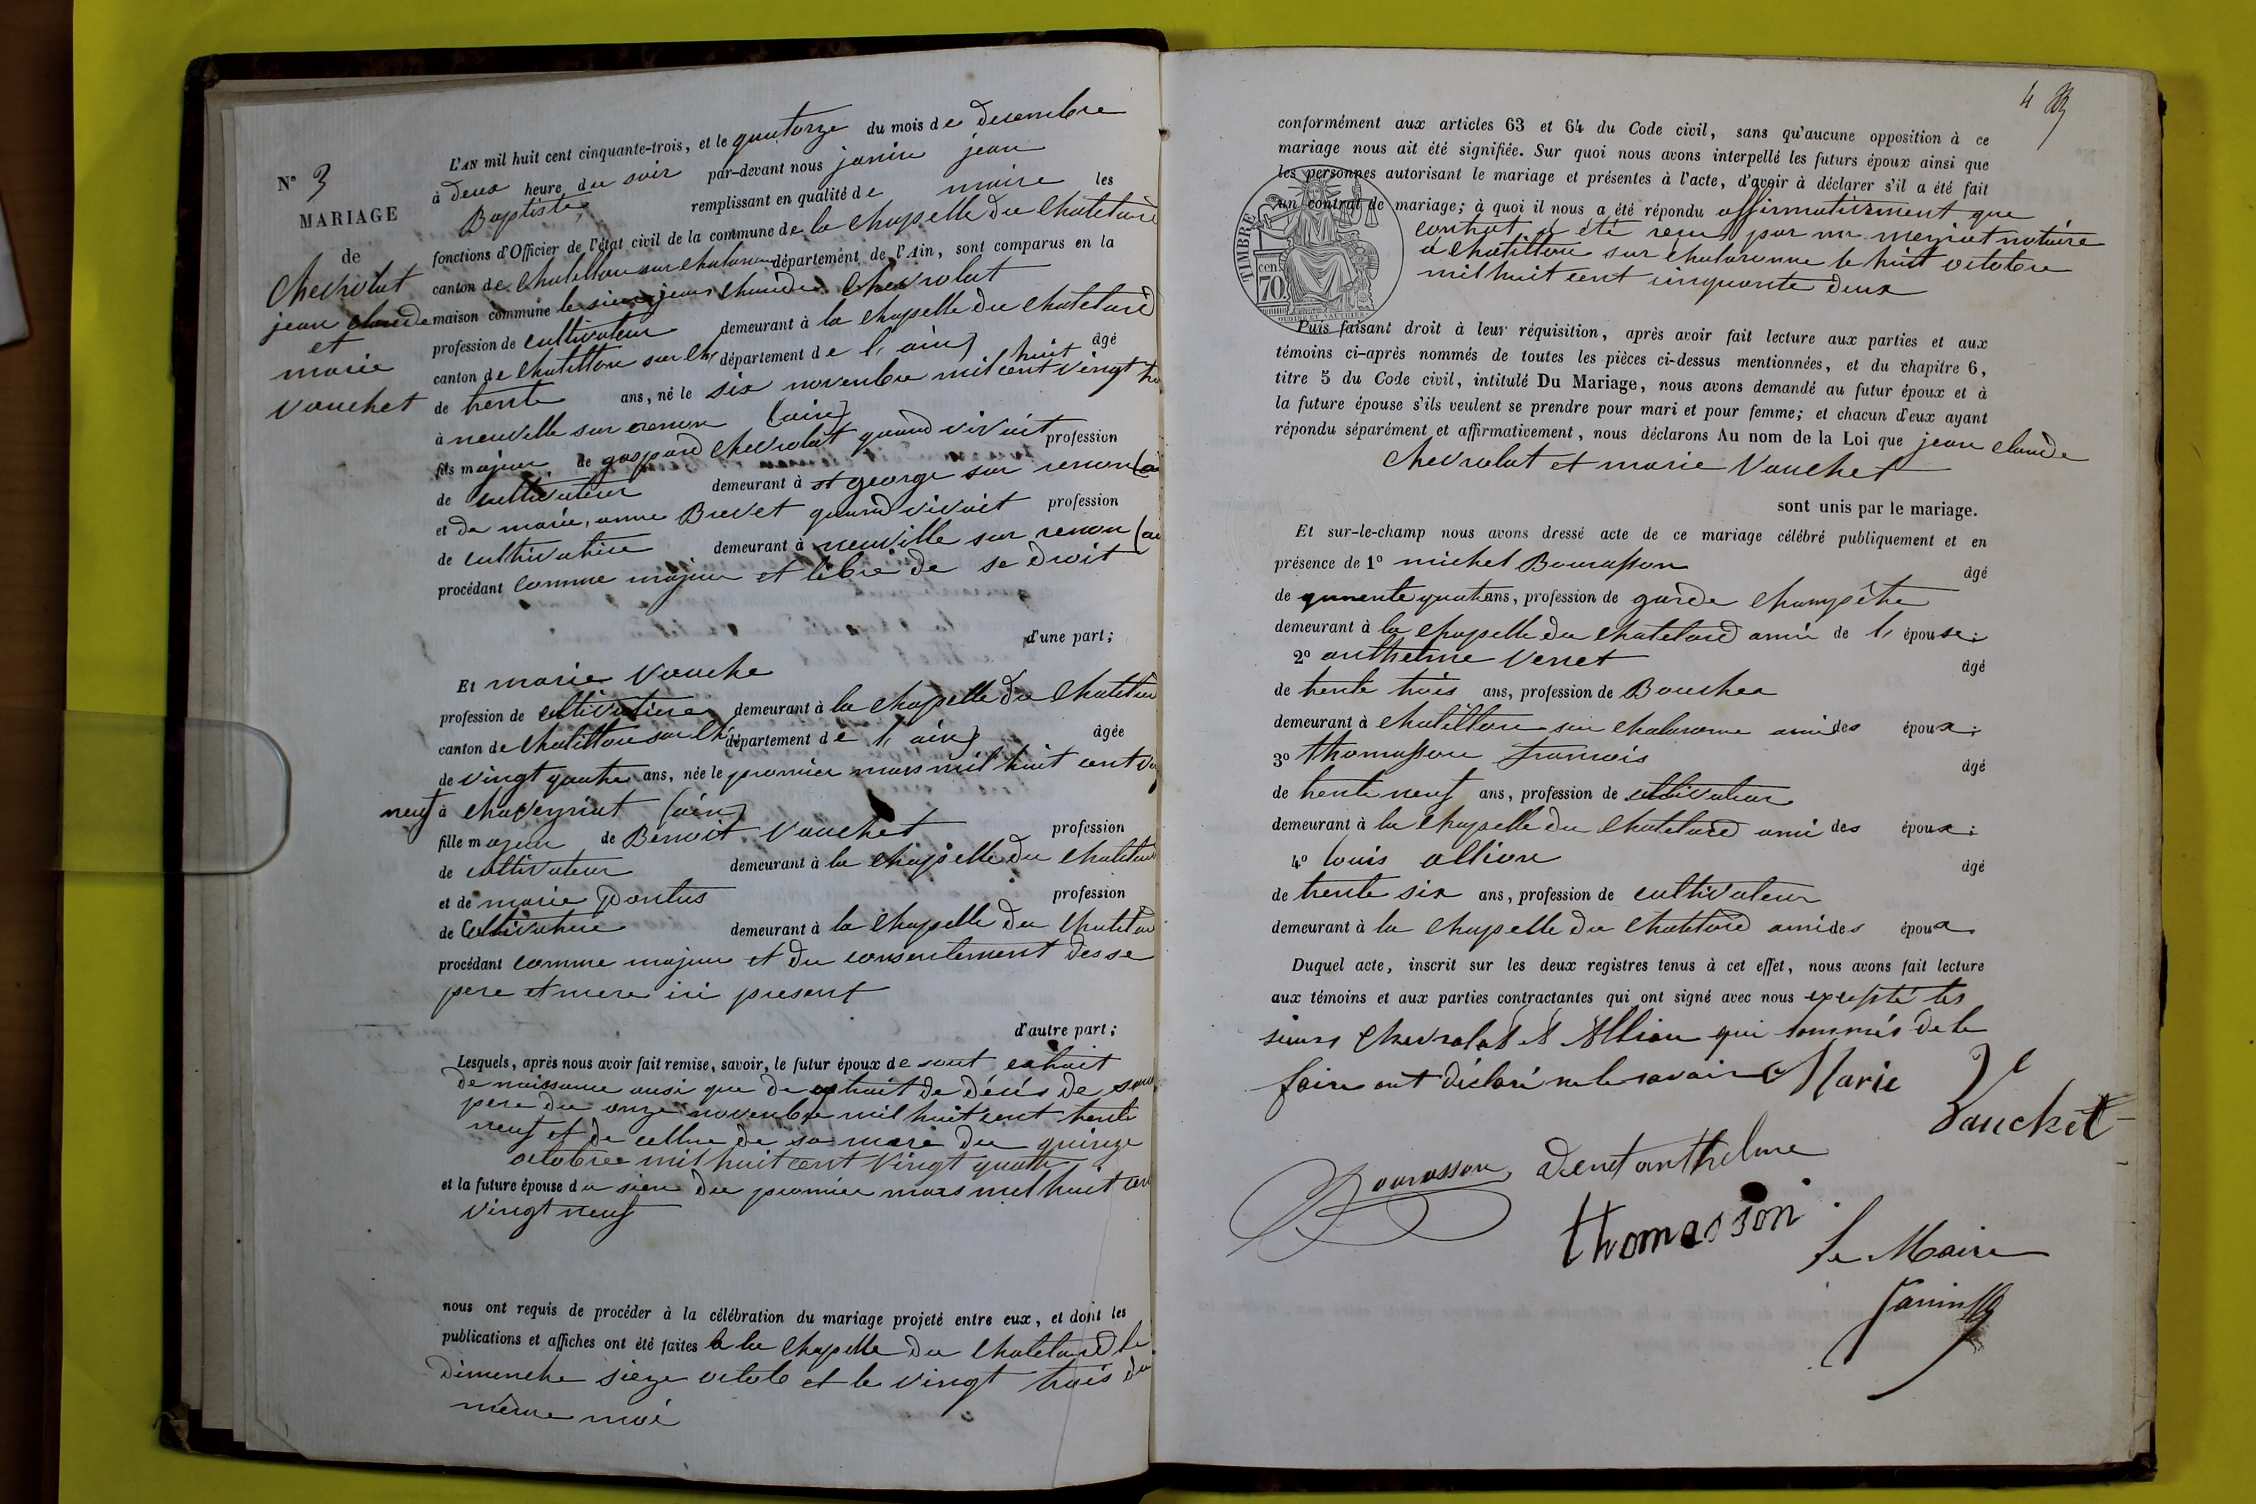 N° 3
MARIAGE
de
Chevrolat
jean claude
et
marie
Vouchet
L'AN mil huit cent cinquante-trois, et le quatorze du mois de desembre
à deux heure du soir par-devant nous janin jean
Baptiste remplissant en qualité de maire les
fonctions d'Officier de l'état civil de la commune de la chapelle du Chatelard
canton de Chatillon sur chalaronne département de l'Ain, sont comparus en la
maison commune le sieur jean Claude Chevrolat
profession de cultivateur demeurant à la chapelle du Chatelard
canton de chatillon sur ch. département de l'ain) âgé
de trente ans, né le six novembre mil huit cent vingt tro
à neuville sur renon (ain)
fils majeur de gaspard Chevrolat quand vivait profession
de cultivateur demeurant à st george sur renon (ai
et de marie, anne Brevet quand vivait profession
de cultivatrice demeurant à neuville sur renon (ai
procédant comme majeur et libre de se droit
d'une part;
Et marie Vouche
profession de cultivatrice demeurant à la chapelle du Chatelard
canton de Chatillon sur Ch. département de l'ain) âgée
de vingt quatre ans, née le premier mars mil huit cent vin
neuf à chaveyriat (ain)
fille majeur de Benoit Vouchet profession
de cultivateur demeurant à la chapelle du Chatelard
et de marie Pontus profession
de Cultivatrice demeurant à la chapelle du Chatelard
procédant comme majeur et du consentement des se
pere et mere ici present
d'autre part;
Lesquels, après nous avoir fait remise, savoir, le futur époux de sont extrait
de naissance ausi que de extrait de décés de son
pere du onze novembre mil huit cent trente
neuf et de cellue de sa mere du quinze
octobre mil huit cent vingt quatre
et la future épouse du sien du premier mars mil huit cen
vingt neuf
nous ont requis de procéder à la célébration du mariage projeté entre eux, et dont les
publications et affiches ont été faites a la Chapelle du Chatelard le
dimenche sieze octob et le vingt trois du
même moi
4
conformément aux articles 63 et 64 du Code civil, sans qu'aucune opposition à ce
mariage nous ait été signifiée. Sur quoi nous avons interpellé les futurs époux ainsi que
les personnes autorisant le mariage et présentes à l'acte, d'avoir à déclarer s'il a été fait
un contrat de mariage; à quoi il nous a été répondu affirmativement que
contrat a été reçu par mr meyriat notaire
a chatillon sur chalaronne le huit octobre
mil huit cent cinquante deux
TIMBRE
cen.
70
Puis faisant droit à leur réquisition, après avoir fait lecture aux parties et aux
témoins ci-après nommés de toutes les pièces ci-dessus mentionnées, et du chapitre 6,
titre 5 du Code civil, intitulé Du Mariage, nous avons demandé au futur époux et à
la future épouse s'ils veulent se prendre pour mari et pour femme; et chacun d'eux ayant
répondu séparément et affirmativement, nous déclarons Au nom de la Loi que jean claude
Chevrolat et marie Vouchet
sont unis par le mariage.
Et sur-le-champ nous avons dressé acte de ce mariage célébré publiquement et en
présence de 1° michel Bourasson âgé
de quarente quatre ans, profession de garde champètre
demeurant à la chapelle du chatelard ami de l' épouse;
2° anthelme Venet âgé
de trente trois ans, profession de Boucher
demeurant à chatillon sur chalaronne ami des époux;
3° thomasson francois âgé
de trente neuf ans, profession de cultivateur
demeurant à la chapelle du Chatelard ami des époux;
4° louis allion âgé
de trente six ans, profession de cultivateur
demeurant à la chapelle du Chatelard ami des époux
Duquel acte, inscrit sur les deux registres tenus à cet effet, nous avons fait lecture
aux témoins et aux parties contractantes qui ont signé avec nous excepté les
sieurs Chevrolat et Allion qui sommés de le
faire ont déclaré ne le savoir Marie
Vauchet
Bourasson Venet anthelme
thomasson
Le Maire
Janin